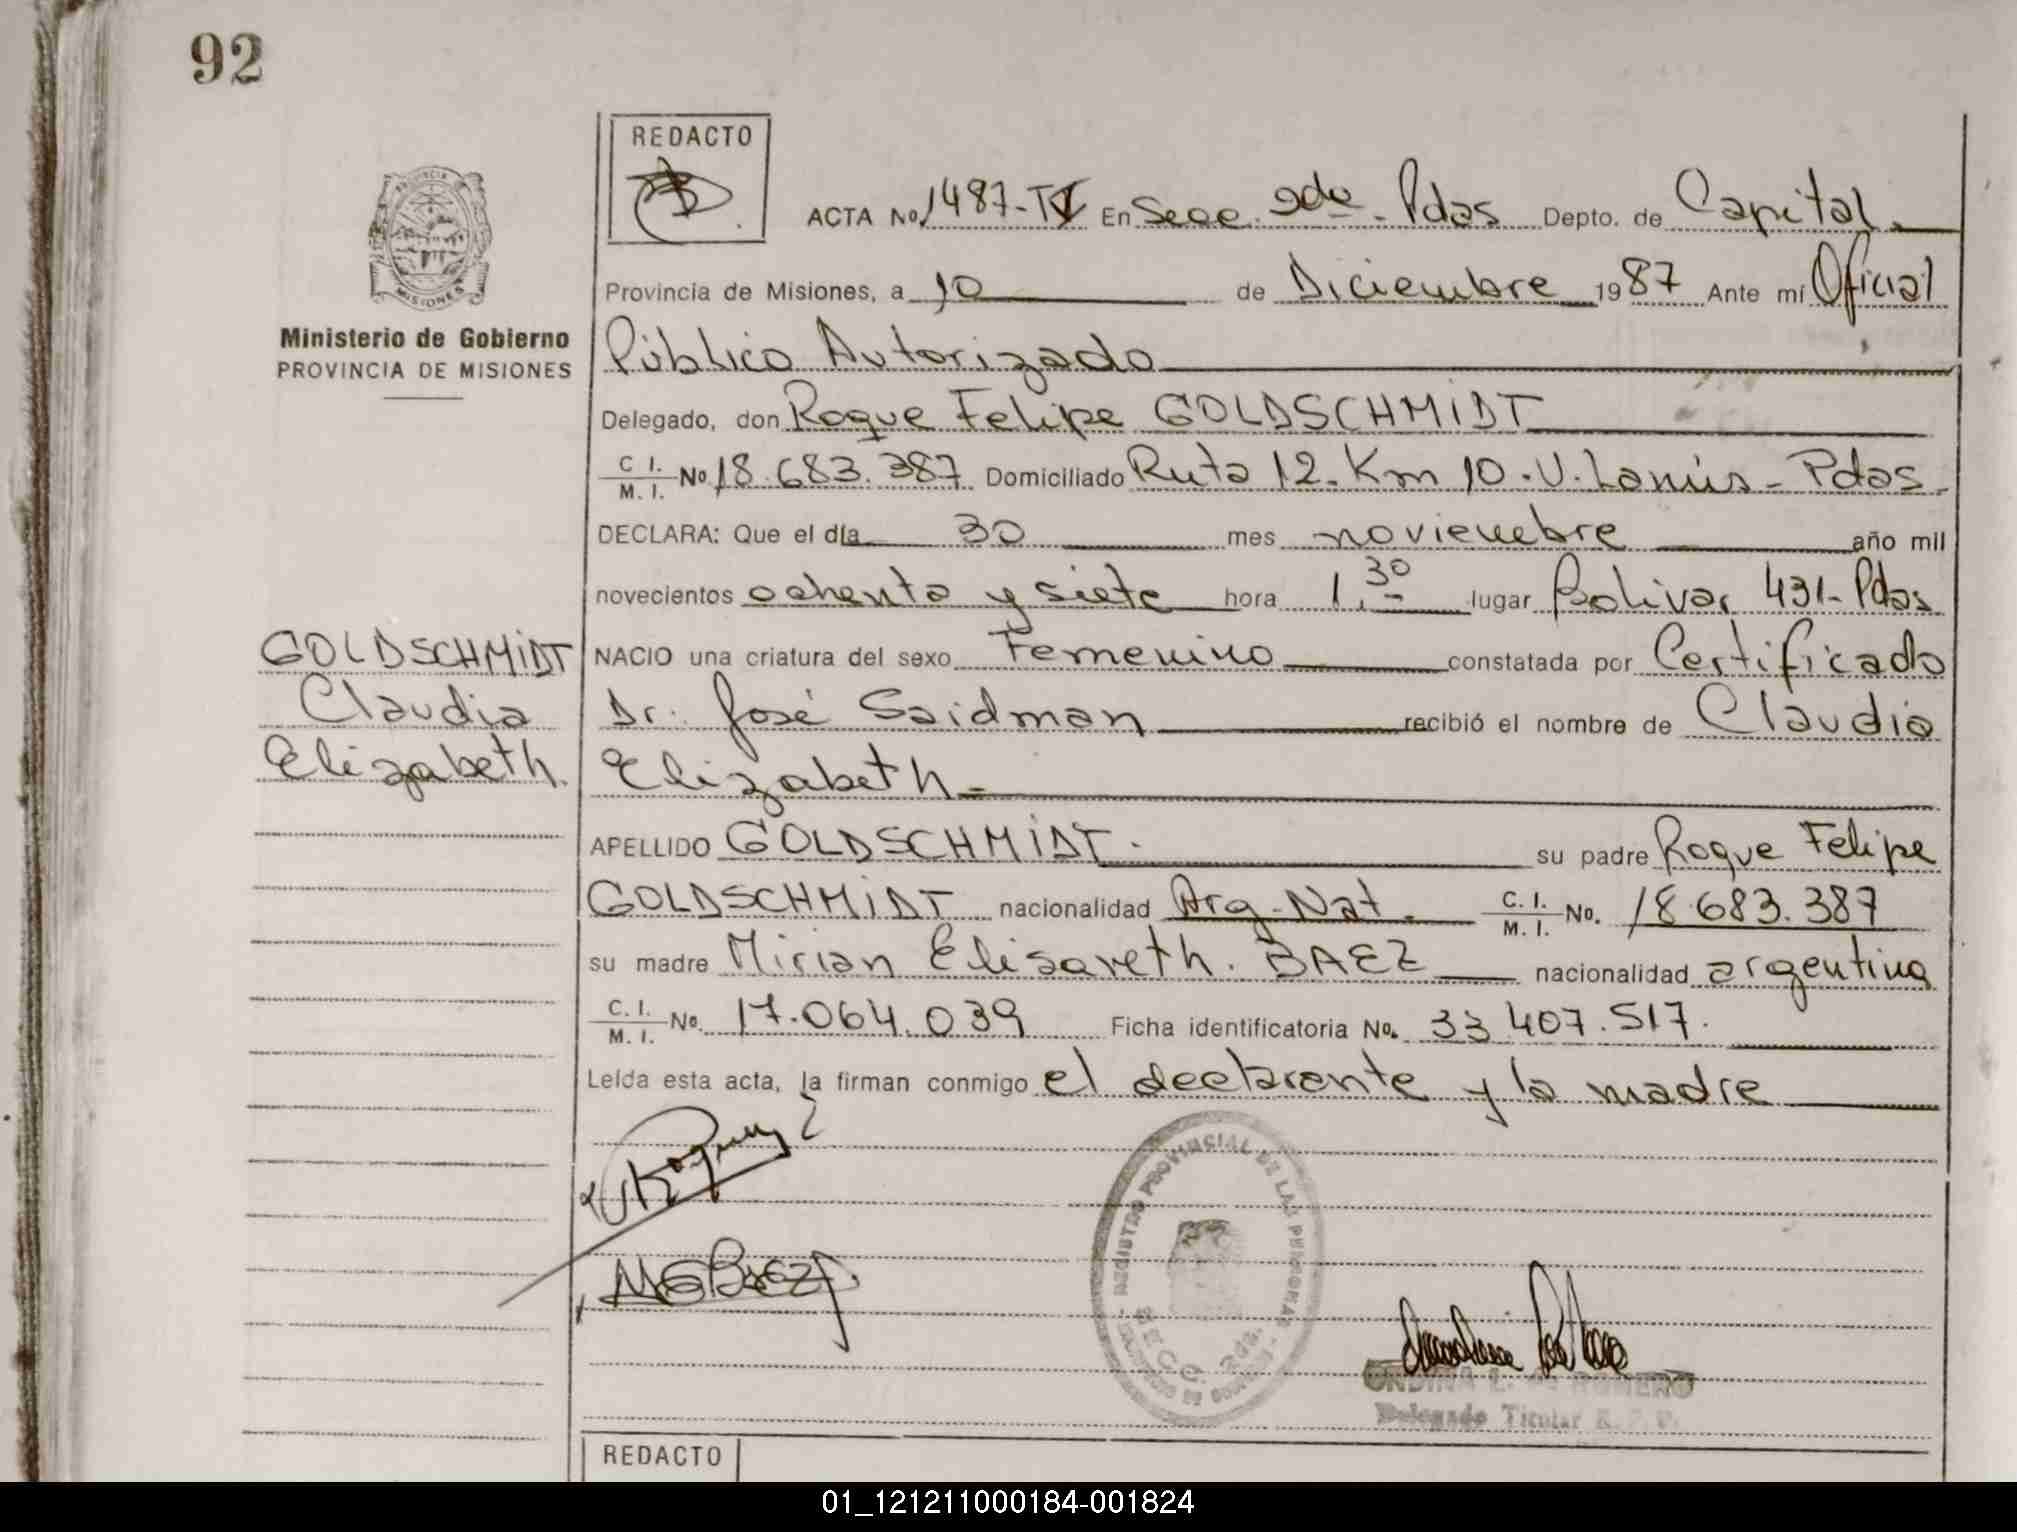 92
REDACTO
ACTA No. 1487-TV En Secc. 2da. Pdas Depto. de Capital.
Provincia de Misiones, a 10 de Diciembre 1987 Ante mí Oficial
Ministerio de Gobierno
PROVINCIA DE MISIONES
MISIONES
Público Autorizado
Delegado, don Roque Felipe GOLDSCHMIDT
C. I. M. I. No 18.683.387 Domiciliado Ruta 12. Km 10. V. Lanús - Pdas.
DECLARA: Que el día 30 mes noviembre año mil
novecientos ochenta y siete hora 1,30 lugar Bolivar 431- Pdas
GOLDSCHMIDT
Claudia
Elizabeth.
NACIO una criatura del sexo Femenino constatada por Certificado
Dr. José Saidman recibió el nombre de Claudia
Elizabeth.-
APELLIDO GOLDSCHMIDT. su padre Roque Felipe
GOLDSCHMIDT nacionalidad Arg. Nat. C. I. M. I. No. 18.683.387
su madre Mirian Elisaveth. BAEZ nacionalidad argentina
C. I. M. I. No. 17.064.039 Ficha identificatoria No. 33 407.517.
Leída esta acta, la firman conmigo el declarante y la madre
REGISTRO PROVINCIAL DE LAS PERSONAS
SECC. 2da.
MEBaez
ONDINA L. de ROMERO
Delegado Titular R. P. P.
REDACTO
01_121211000184-001824